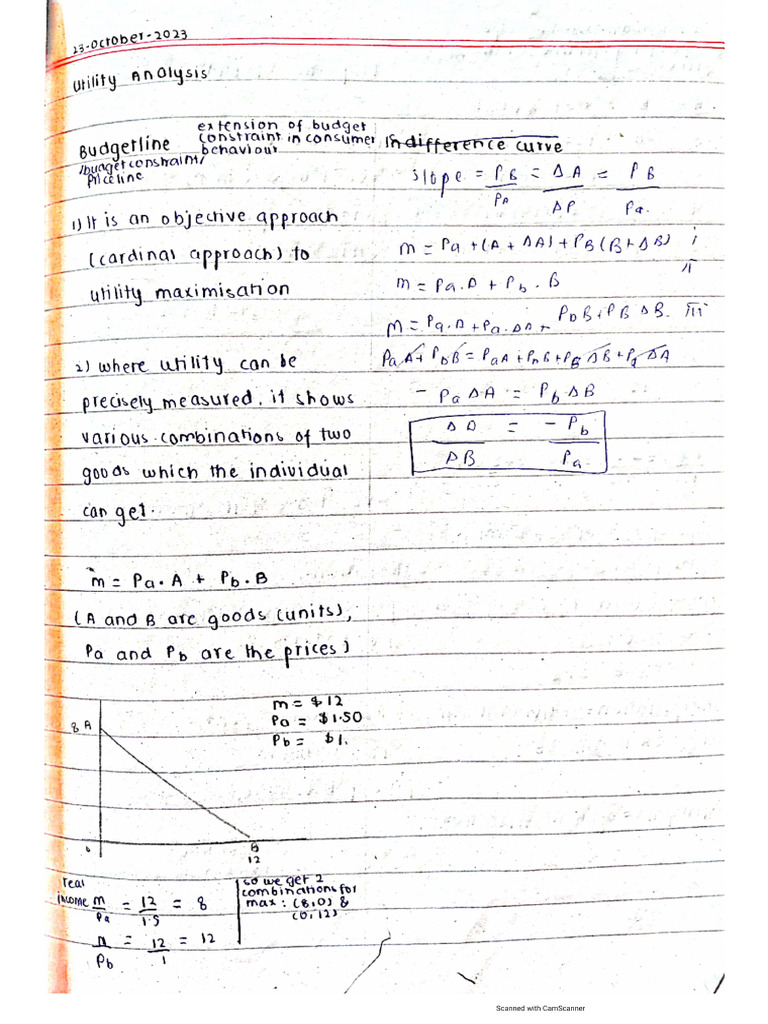 23-October-2023
Utility Analysis
Budgetline
/budget constraint/
priceline
extension of budget
constraint in consumer
behaviour
Indifference curve
slope = PB/PA = ΔA/ΔP = PB/Pa.
1) It is an objective approach
(cardinal approach) to
utility maximisation
m = Pa + (A + ΔA) + PB (B + ΔB) i
m = Pa . A + Pb . B ii
m = Pa . A + Pa . ΔA + PbB + PB ΔB. iii
PaA + PbB = PaA + PBB + PB ΔB + Pa ΔA
- Pa ΔA = Pb . ΔB
ΔA/ΔB = - Pb/Pa
2) where utility can be
precisely measured. it shows
various combinations of two
goods which the individual
can get.
m = Pa . A + Pb . B
(A and B are goods (units),
Pa and Pb are the prices)
m = $12
Pa = $1.50
Pb = $1.
8 A
B
12
real
income m/Pa = 12/1.5 = 8
m/Pb = 12/1 = 12
so we get 2
combinations for
max : (8,0) &
(0,12)
Scanned with CamScanner